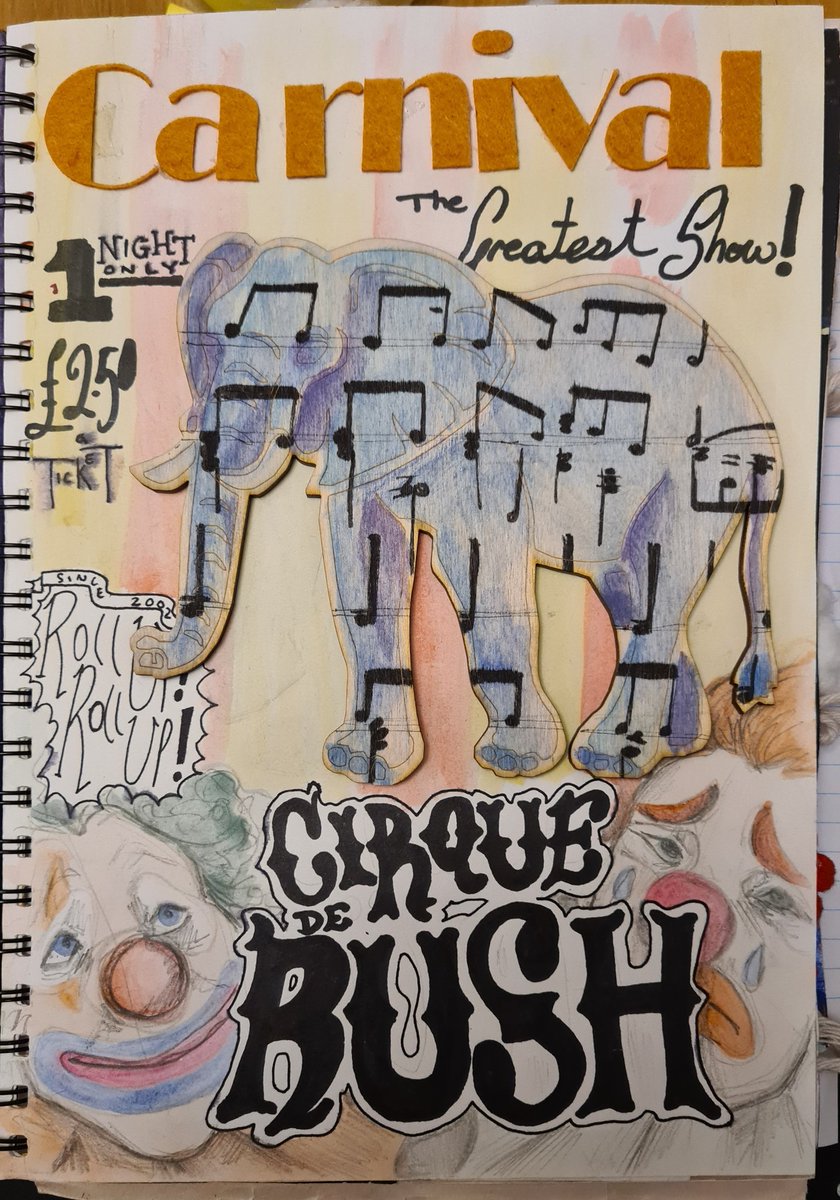 Carnival
The
Greatest Show!
1 NIGHT
ONLY
£2.50
a
TICKET
SINCE
2002
Roll
UP!
Roll
UP!
CIRQUE
DE
RUSH